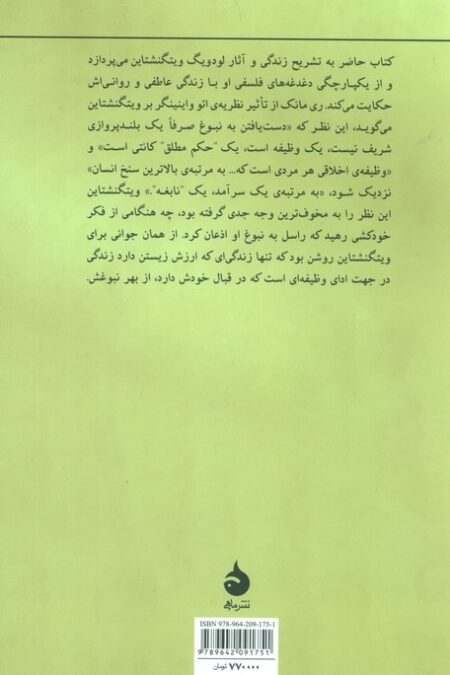 کتاب حاضر به تشریح زندگی و آثار لودویگ ویتگنشتاین می‌پردازد
و از یکپارچگی دغدغه‌های فلسفی او با زندگی عاطفی و روانی‌اش
حکایت می‌کند. ری مانک از تأثیر نظریه‌ی اتو واینینگر بر ویتگنشتاین
می‌گوید، این نظر که «دست‌یافتن به نبوغ صرفاً یک بلندپروازی
شریف نیست، یک وظیفه است، یک "حکم مطلق" کانتی است» و
«وظیفه‌ی اخلاقی هر مردی است که... به مرتبه‌ی بالاترین سنخ انسان»
نزدیک شود، «به مرتبه‌ی یک سرآمد، یک "نابغه".» ویتگنشتاین
این نظر را به مخوف‌ترین وجه جدی گرفته بود، چه هنگامی از فکر
خودکشی رهید که راسل به نبوغ او اذعان کرد. از همان جوانی برای
ویتگنشتاین روشن بود که تنها زندگی‌ای که ارزش زیستن دارد زندگی
در جهت ادای وظیفه‌ای است که در قبال خودش دارد، از بهر نبوغش.
نشرماهی
ISBN 978-964-209-175-1
9789642091751
۷۷۰۰۰۰ تومان